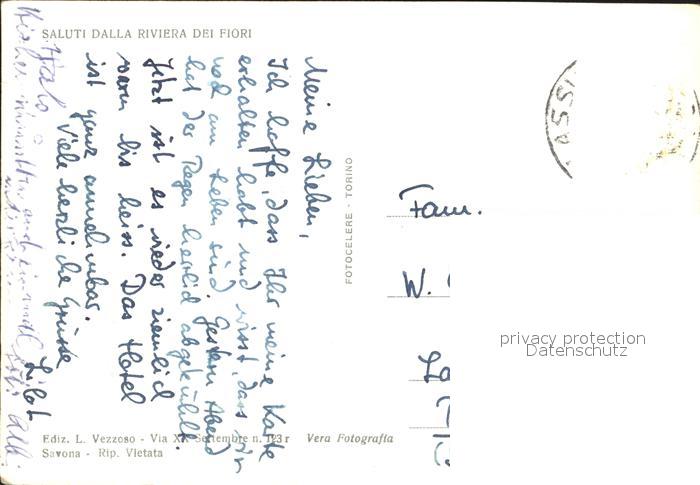 SALUTI DALLA RIVIERA DEI FIORI
Meine Lieben,
Ich hoffe, dass Ihr meine Karte
erhalten habt und wisst, dass wir
noch am Leben sind. Gestern Abend
hat der Regen herrlich abgekühlt.
Jetzt ist es wieder ziemlich
warm bis heiss. Das Hotel
ist ganz annehmbar.
Viele herzliche Grüsse
Lilot
FOTOCELERE - TORINO
ASSI
Fam.
W.
privacy protection
Datenschutz
Ediz. L. Vezzoso - Via XX Settembre n. 123 r Vera Fotografia
Savona - Rip. Vietata